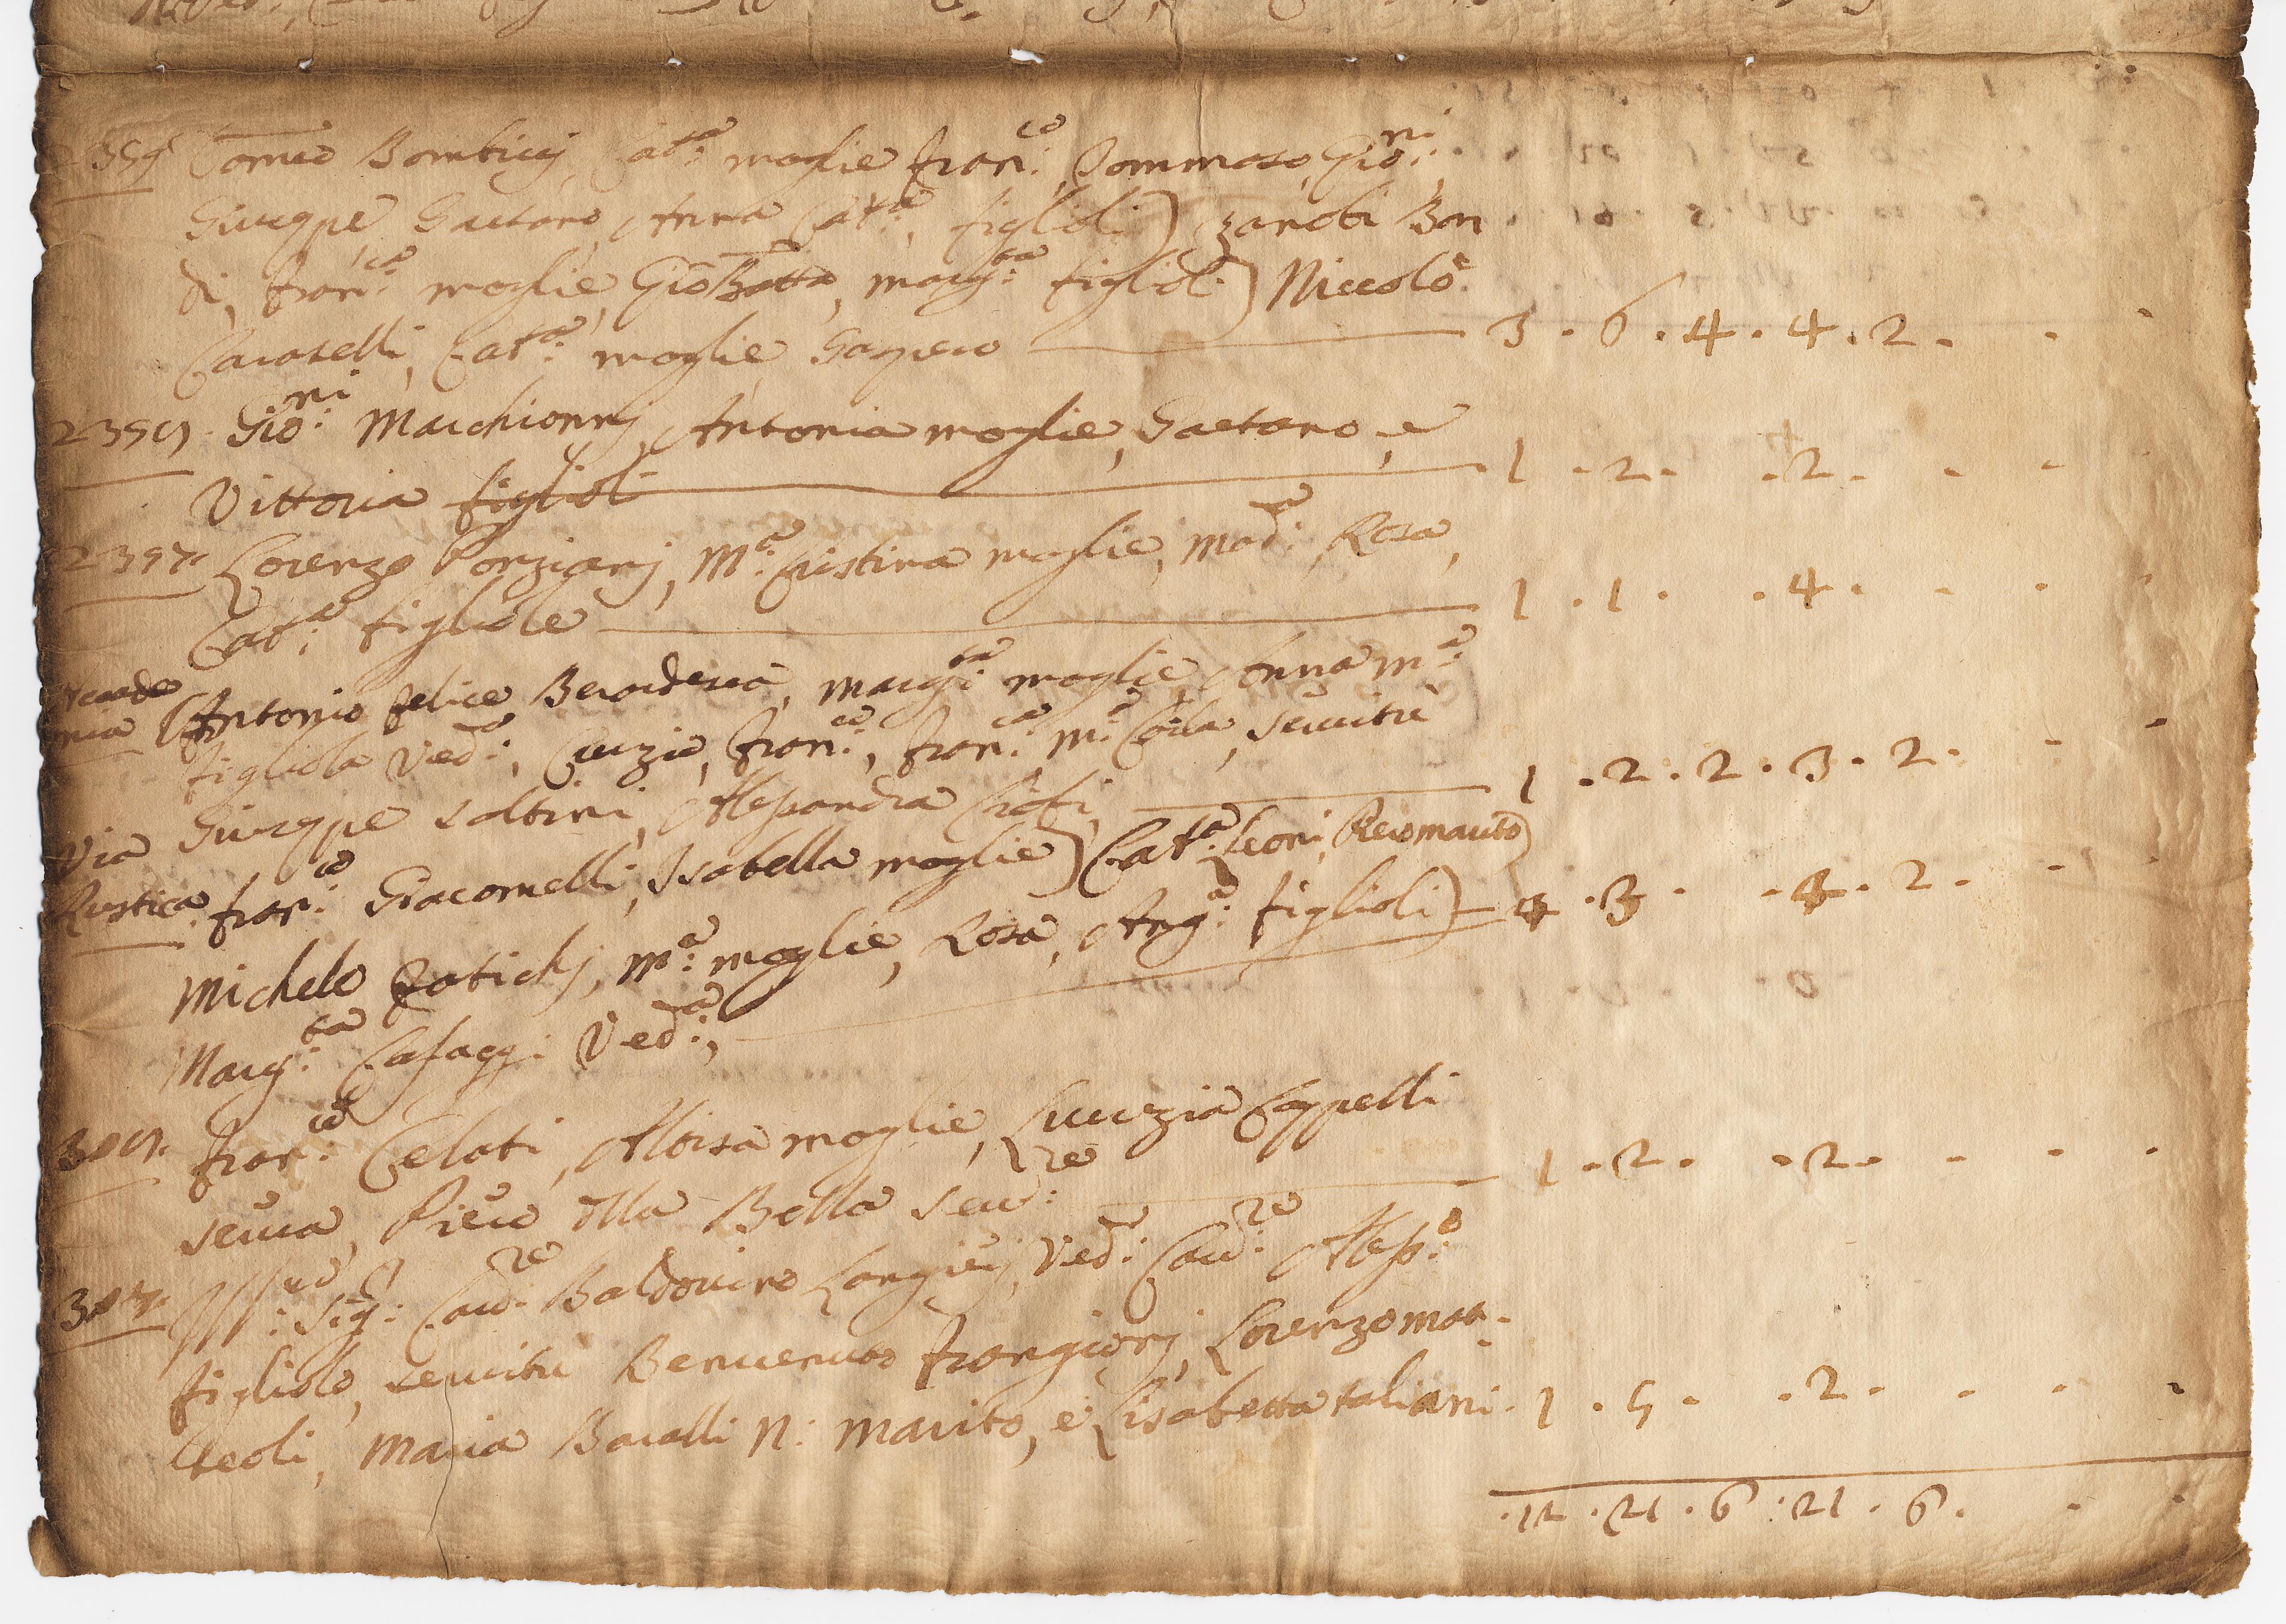 Bombicij, Cat.a moglie, Fran.co, Tommaso, Gio.ni
Giuseppe Gaetano, Anna Cat.a, figlioli) Zanobi Bon
di, Fran.ca moglie, Gio Batta, Marg.ta figlioli) Niccolò
Caroselli, Cat.a moglie Gaspero 3 . 6 . 4 . 4 . 2 .
Gio.ni Marchionnj, Antonia moglie, Gaetano, e
Vittoria figlioli 1 . 2 . . 2 .
2397. Lorenzo Ponzianj, M.a Cristina moglie, Mad.a, Rosa,
Cat.a figliole 1 . 1 . . 4 .
Antonio Felice Marg.ta moglie, Anna M.a
figliola Ved.a, Curzio, Fran.co, Fran.ca M.a servitù
Via Giuseppe Soltini, Alessandra 1 . 2 . 2 . 3 . 2 .
Rustica. Fran.co Giacomelli, Isabella moglie) Cat.a Leoni, Piero marito)
Michele moglie, Rosa, Ang.a figlioli) 4 . 3 . . 4 . 2 .
Marg.ta Cafaggi Ved.a,
Fran.co Celati, Aloisa moglie, Lucrezia Cappelli
serva, Piero della Bella ser.re 1 . 2 . . 2 .
Ill Sig. Cav.re Baldovino Ved.o Cav.re Aless.o
figliolo, servitù Benvenuto Frangionj, Lorenzo Mat-
teoli, Maria Baralli N: marito, e Lisabetta Taliani . 1 . 5 . . 2 .
. 12 . 21 . 6 : 21 . 6 .